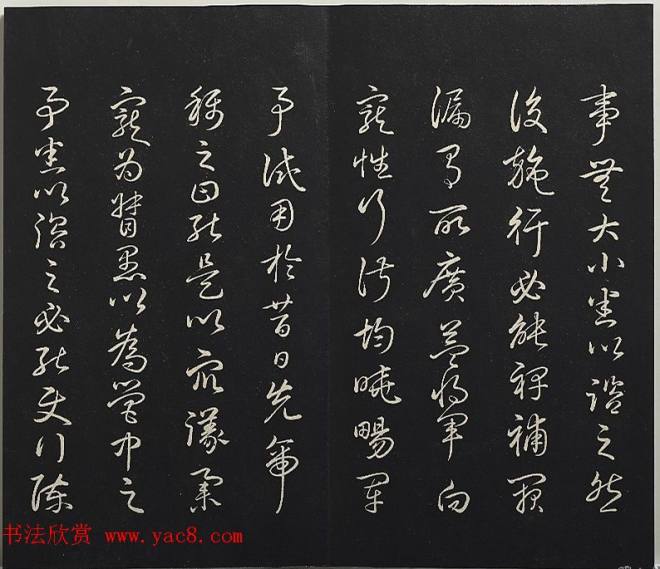 事無大小悉以諮之然
後施行必能裨補闕
漏有所廣益將軍向
寵性行淑均曉暢軍
事試用於昔日先帝
稱之曰能是以眾議舉
寵為督愚以為營中之
事悉以諮之必能使行陳
书法欣赏 www.yac8.com